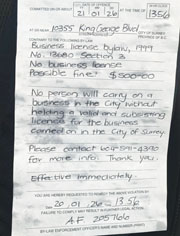 COMMITTED ON OR ABOUT 21 01 26 AT THE TIME OF 1356
AT OR NEAR 10355 King George Blvd
CITY OF SURREY
CONTRARY TO THE FOLLOWING BY-LAW
Business license bylaw, 1999
No. 13680 Section 3
No business license
Possible fine: $500.00
No person will carry on a
business in the City without
holding a valid and subsisting
license for the business
carried on in the City of Surrey.
Please contact 604-591-4370
for more info. Thank you.
Effective immediately.
YOU ARE HEREBY REQUESTED TO REMEDY THE ABOVE VIOLATION BY
20.01.26 13:56
FAILURE TO COMPLY MAY RESULT IN FURTHER ACTION
AF 205766
BY-LAW ENFORCEMENT OFFICER'S NAME AND NUMBER